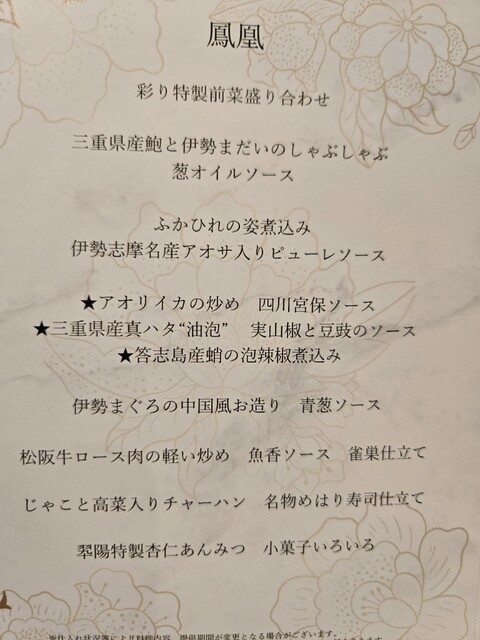 鳳凰
彩り特製前菜盛り合わせ
三重県産鮑と伊勢まだいのしゃぶしゃぶ
葱オイルソース
ふかひれの姿煮込み
伊勢志摩名産アオサ入りピューレソース
★アオリイカの炒め　四川宮保ソース
★三重県産真ハタ“油泡”　実山椒と豆豉のソース
★答志島産蛸の泡辣椒煮込み
伊勢まぐろの中国風お造り　青葱ソース
松阪牛ロース肉の軽い炒め　魚香ソース　雀巣仕立て
じゃこと高菜入りチャーハン　名物めはり寿司仕立て
翆陽特製杏仁あんみつ　小菓子いろいろ
※仕入れ状況等により料理内容、提供期間が変更となる場合がございます。